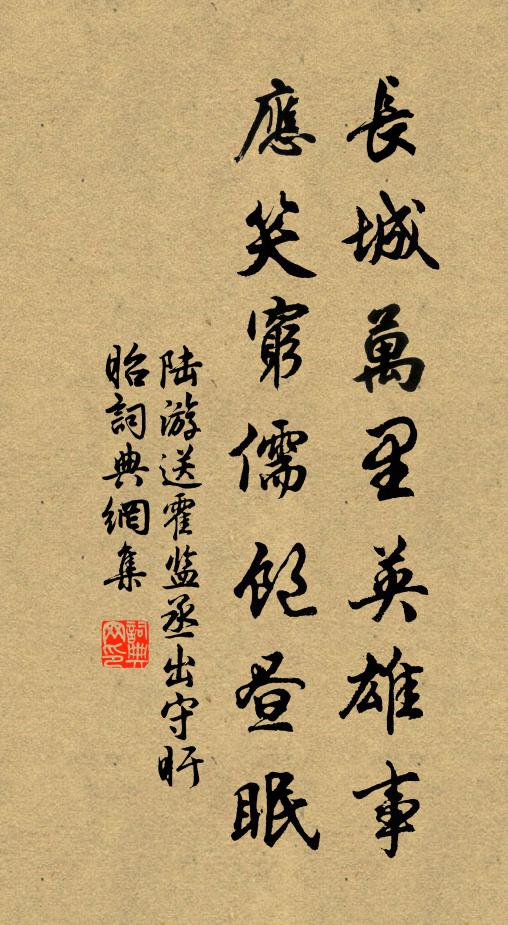 長城萬里英雄事
應笑窮儒飽晝眠
陆游送霍监丞出守盱
眙詞典網集
詞典網印